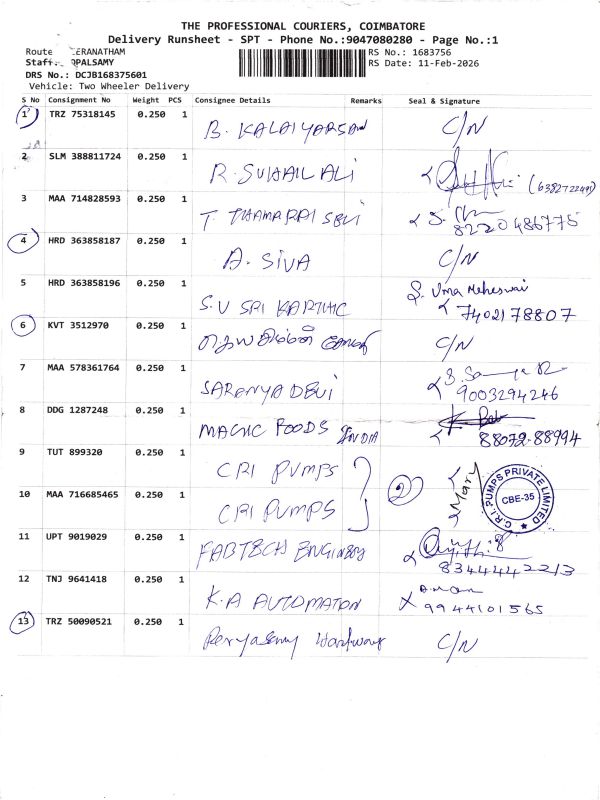 THE PROFESSIONAL COURIERS, COIMBATORE
Delivery Runsheet - SPT - Phone No.:9047080280 - Page No.:1
Route ERANATHAM RS No.: 1683756
Staff: OPALSAMY RS Date: 11-Feb-2026
DRS No.: DCJB168375601
Vehicle: Two Wheeler Delivery
S No Consignment No Weight PCS Consignee Details Remarks Seal & Signature
1 TRZ 75318145 0.250 1 B. KALAIYARSAN C/N
2 SLM 388811724 0.250 1 R. SUHAIL ALI
3 MAA 714828593 0.250 1 T THAMARAI SELVI 8220486775
4 HRD 363858187 0.250 1 A. SIVA C/N
5 HRD 363858196 0.250 1 S.V SRI KARTHIC S. Uma Maheswari 7402178807
6 KVT 3512970 0.250 1 C/N
7 MAA 578361764 0.250 1 SARANYA DEVI 9003294246
8 DDG 1287248 0.250 1 MAGIC FOODS INDIA 88072-88994
9 TUT 899320 0.250 1 CRI PUMPS
2 Mary C.R.I. PUMPS PRIVATE LIMITED CBE-35
10 MAA 716685465 0.250 1 CRI PUMPS
11 UPT 9019029 0.250 1 FABTECH ENGINEERS 8344442213
12 TNJ 9641418 0.250 1 K.A AUTOMATION 9944101565
13 TRZ 50090521 0.250 1 C/N